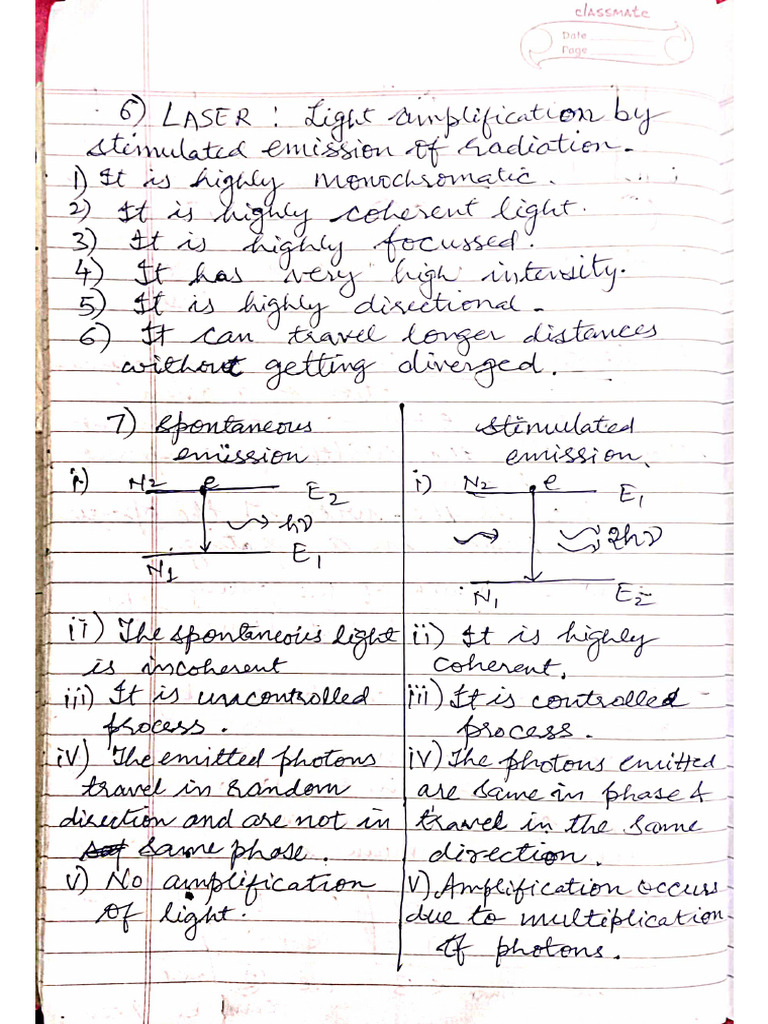 classmate
Date
Page
6) LASER : Light amplification by
stimulated emission of radiation.
1) It is highly monochromatic.
2) It is highly coherent light.
3) It is highly focussed.
4) It has very high intensity.
5) It is highly directional.
6) It can travel longer distances
without getting diverged.
7) Spontaneous
emission
i) N2 e E2
hν
E1
N1
ii) The spontaneous light
is incoherent
iii) It is uncontrolled
process.
iv) The emitted photons
travel in random
direction and are not in
same phase.
v) No amplification
of light.
Stimulated
emission.
i) N2 e E1
2hν
N1 E2
ii) It is highly
coherent.
iii) It is controlled
process.
iv) The photons emitted
are same in phase &
travel in the same
direction.
v) Amplification occurs
due to multiplication
of photons.